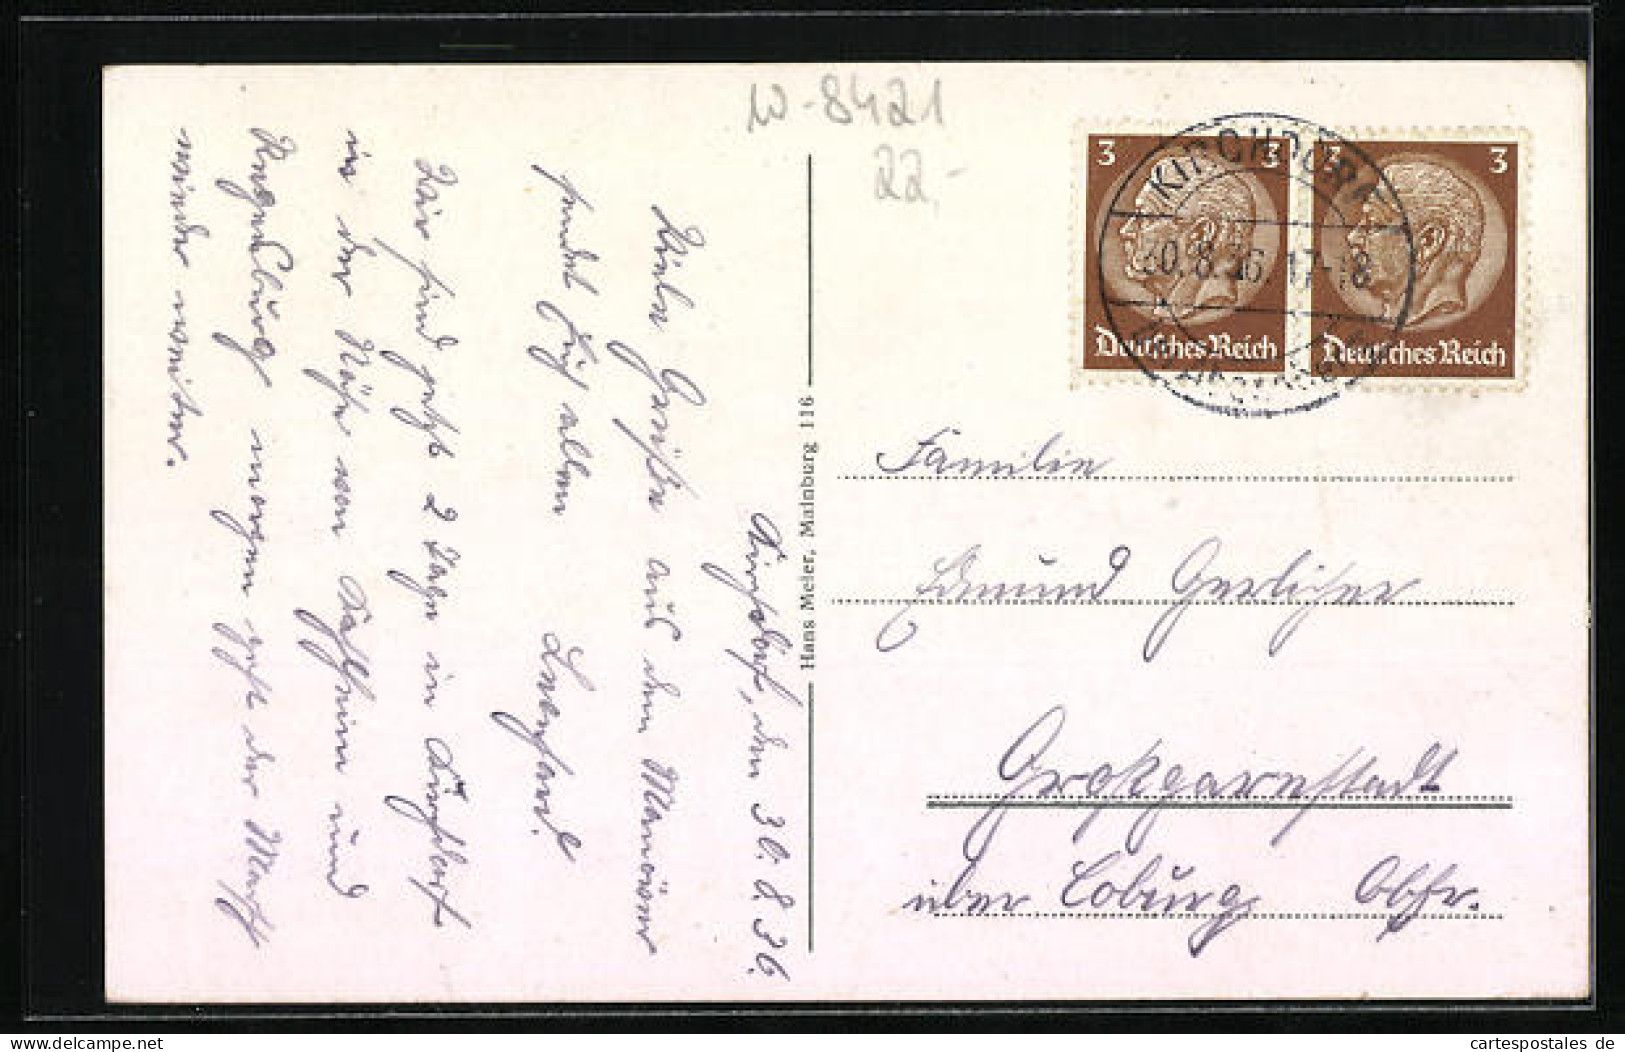 W-8421
22,-
KIRCHDORF
30.8.36. 17-18
3 3
Deutsches Reich
3 3
Deutsches Reich
Kirchdorf, den 30.8.36.
Viele Grüße aus dem Manöver
sendet Euch allen
Wir sind jetzt 2 Tage in Kirchdorf
in der Nähe von und
morgen geht der Marsch
wieder weiter.
Hans Meier, Mainburg 116
Familie
Edmund
Großgarnstadt
über Coburg Obfr.
cartespostales de
www.delcampe.net